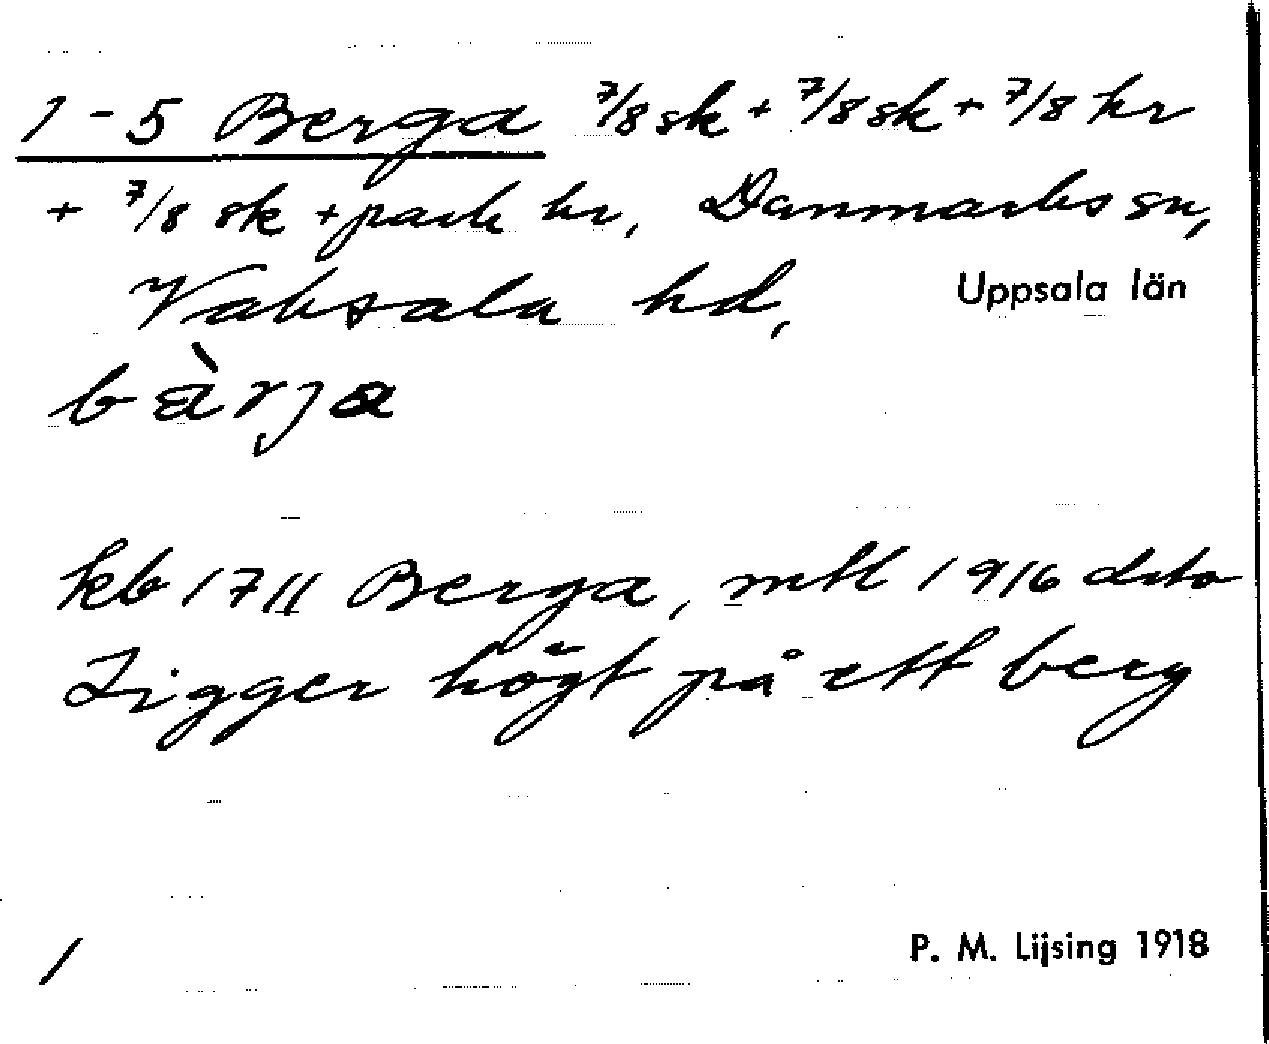 1-5 Berga 7/8 sk + 7/8 sk + 7/8 kr
+ 7/8 sk + park kr, Danmarks sn,
Vaksala hd, Uppsala län
bä̀rja
kb 1711 Berga, mtl 1916 dito
Ligger högt på ett berg
1 P. M. Lijsing 1918